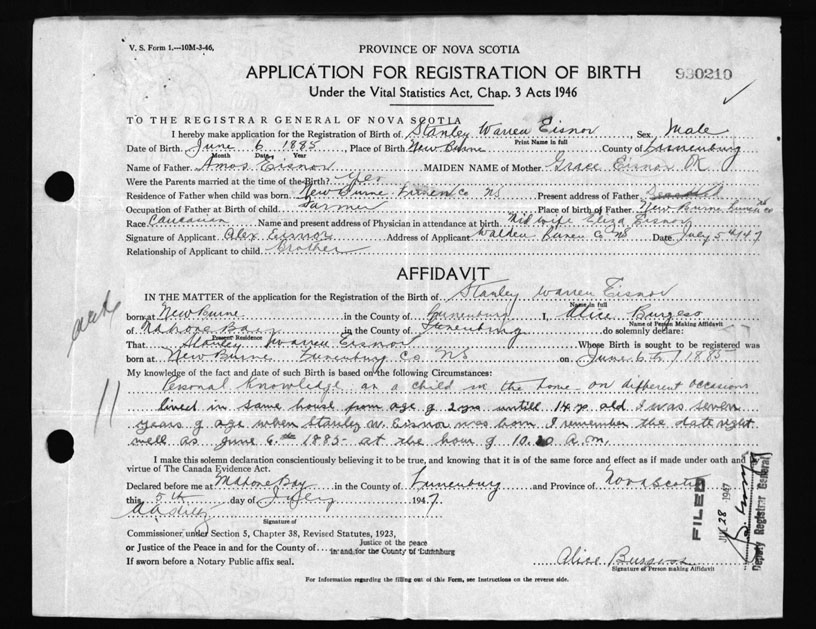 V. S. Form 1.—10M-3-46.
PROVINCE OF NOVA SCOTIA
APPLICATION FOR REGISTRATION OF BIRTH
930210
Under the Vital Statistics Act, Chap. 3 Acts 1946
TO THE REGISTRAR GENERAL OF NOVA SCOTIA
I hereby make application for the Registration of Birth of Stanley Warren Eisnor, Sex Male
Print Name in full
Date of Birth June 6 1885, Place of Birth New Burne County of Lunenburg
Month Date Year
Name of Father Amos Eisnor MAIDEN NAME of Mother Grace Eisnor OK
Were the Parents married at the time of the Birth? Yes
Residence of Father when child was born New Burne Lunen Co NS Present address of Father
Occupation of Father at Birth of child Farmer Place of birth of Father New Burne Lunen Co NS
Race Caucasian Name and present address of Physician in attendance at birth Midwife Eliza Eisnor
Signature of Applicant Alex Eisnor Address of Applicant Walden Lunen Co NS Date July 5th 47
Relationship of Applicant to child Brother
AFFIDAVIT
IN THE MATTER of the application for the Registration of the Birth of Stanley Warren Eisnor
Name in full
born at New Burne in the County of Lunenburg I, Alice Burgess
Name of Person Making Affidavit
of Mahone Bay in the County of Lunenburg do solemnly declare:
Present Residence
That Stanley Warren Eisnor Whose Birth is sought to be registered was
born at New Burne Lunenburg Co NS on June 6th 1885
My knowledge of the fact and date of such Birth is based on the following Circumstances:
Personal Knowledge as a child in the home - on different occasions
lived in same house from age of 2 yrs untill 14 yr old I was seven
years of age when Stanley W. Eisnor was born I remember the date right
well as June 6th 1885 - at the hour of 10.20 A.m.
I make this solemn declaration conscientiously believing it to be true, and knowing that it is of the same force and effect as if made under oath and
virtue of The Canada Evidence Act.
Declared before me at Mahone Bay in the County of Lunenburg and Province of Nova Scotia
this 5th day of July 1947
Signature of
Commissioner under Section 5, Chapter 38, Revised Statutes, 1923,
or Justice of the Peace in and for the County of
Justice of the peace
in and for the County of Lunenburg
If sworn before a Notary Public affix seal.
Alice Burgess
Signature of Person making Affidavit
FILED
JUL 28 1947
Deputy Registrar General
For Information regarding the filling out of this Form, see Instructions on the reverse side.